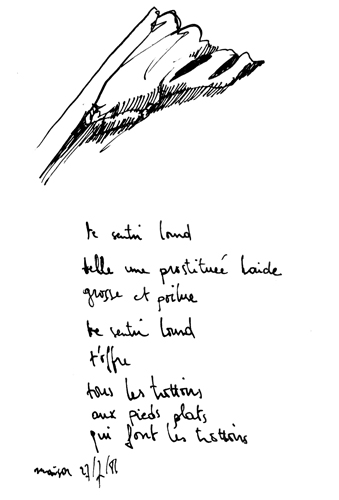 te sentir lourd
telle une prostituée laide
grosse et poilue
te sentir lourd
t'offre
tous les trottoirs
aux pieds plats
qui font les trottoirs
maison 27/7/81